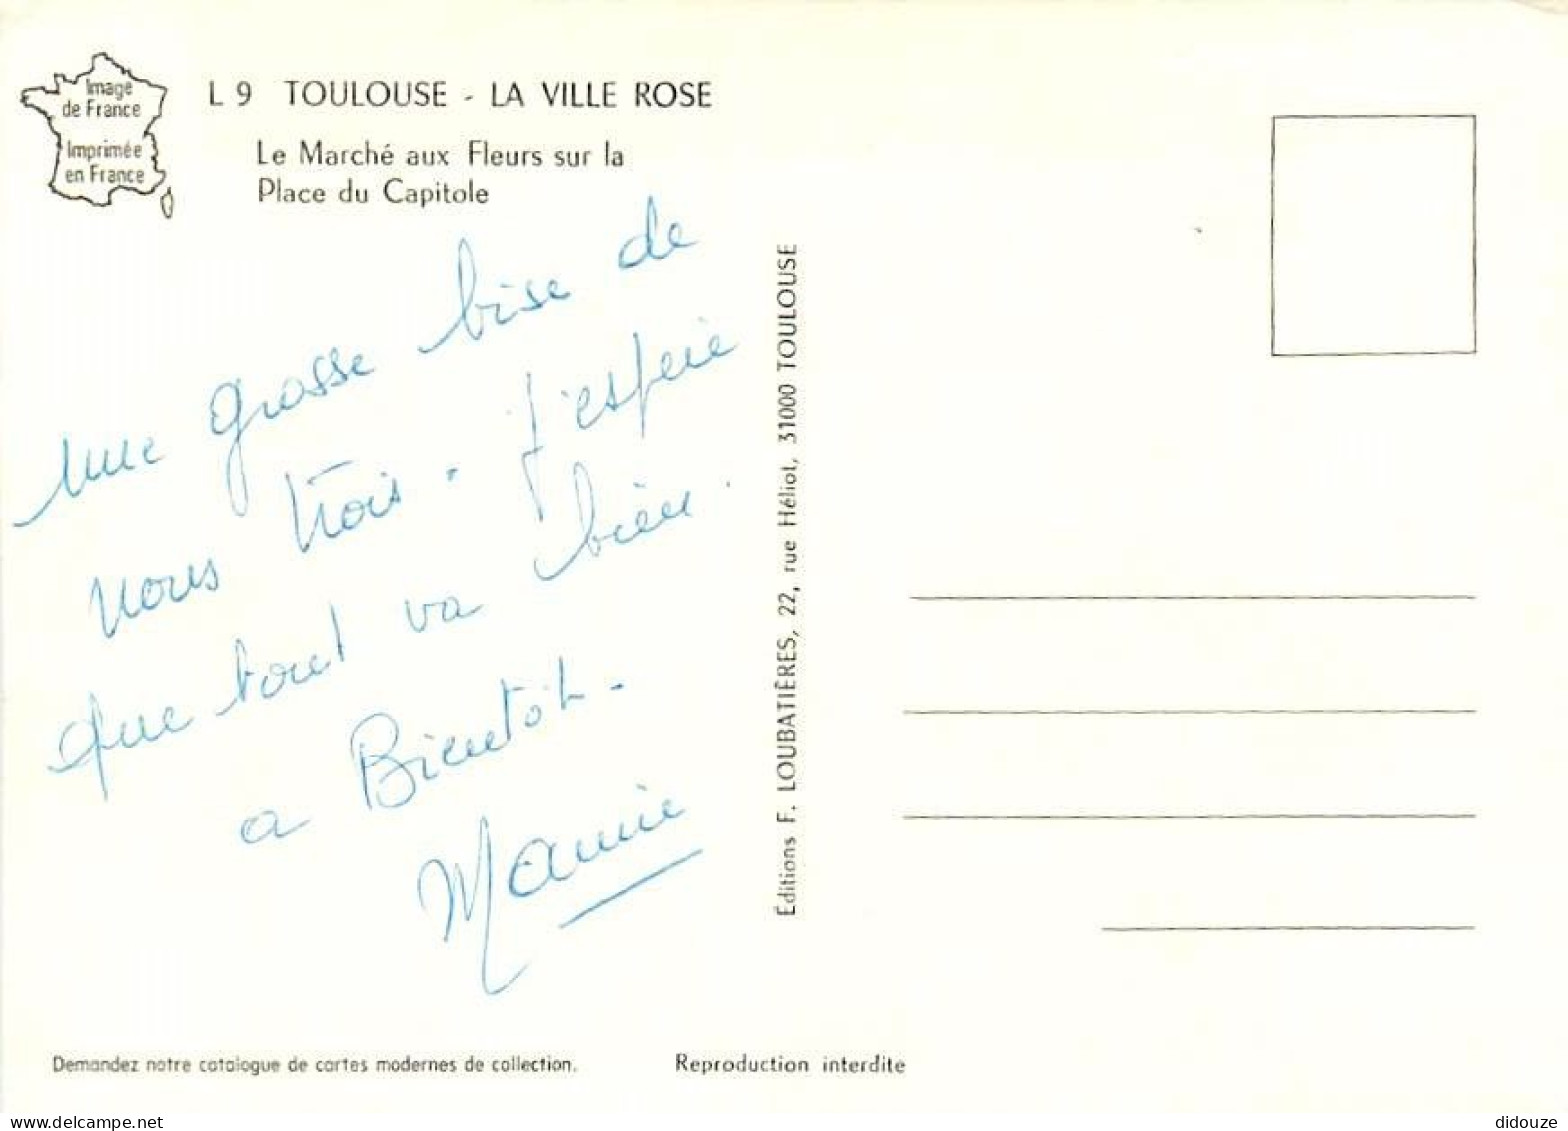 Image
de France
Imprimée
en France
L 9 TOULOUSE - LA VILLE ROSE
Le Marché aux Fleurs sur la
Place du Capitole
une grosse bise de
nous trois. J'espère
que tout va bien.
a Bientôt.
Mamie
Éditions F. LOUBATIÈRES, 22, rue Héliot, 31000 TOULOUSE
Demandez notre catalogue de cartes modernes de collection.
Reproduction interdite
www.delcampe.net
didouze